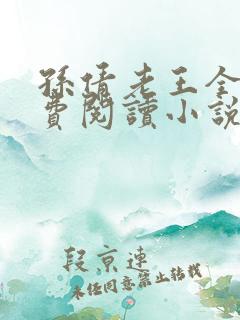 孫倩老王全
費閱讀小說
段京連
未经同意禁止转载